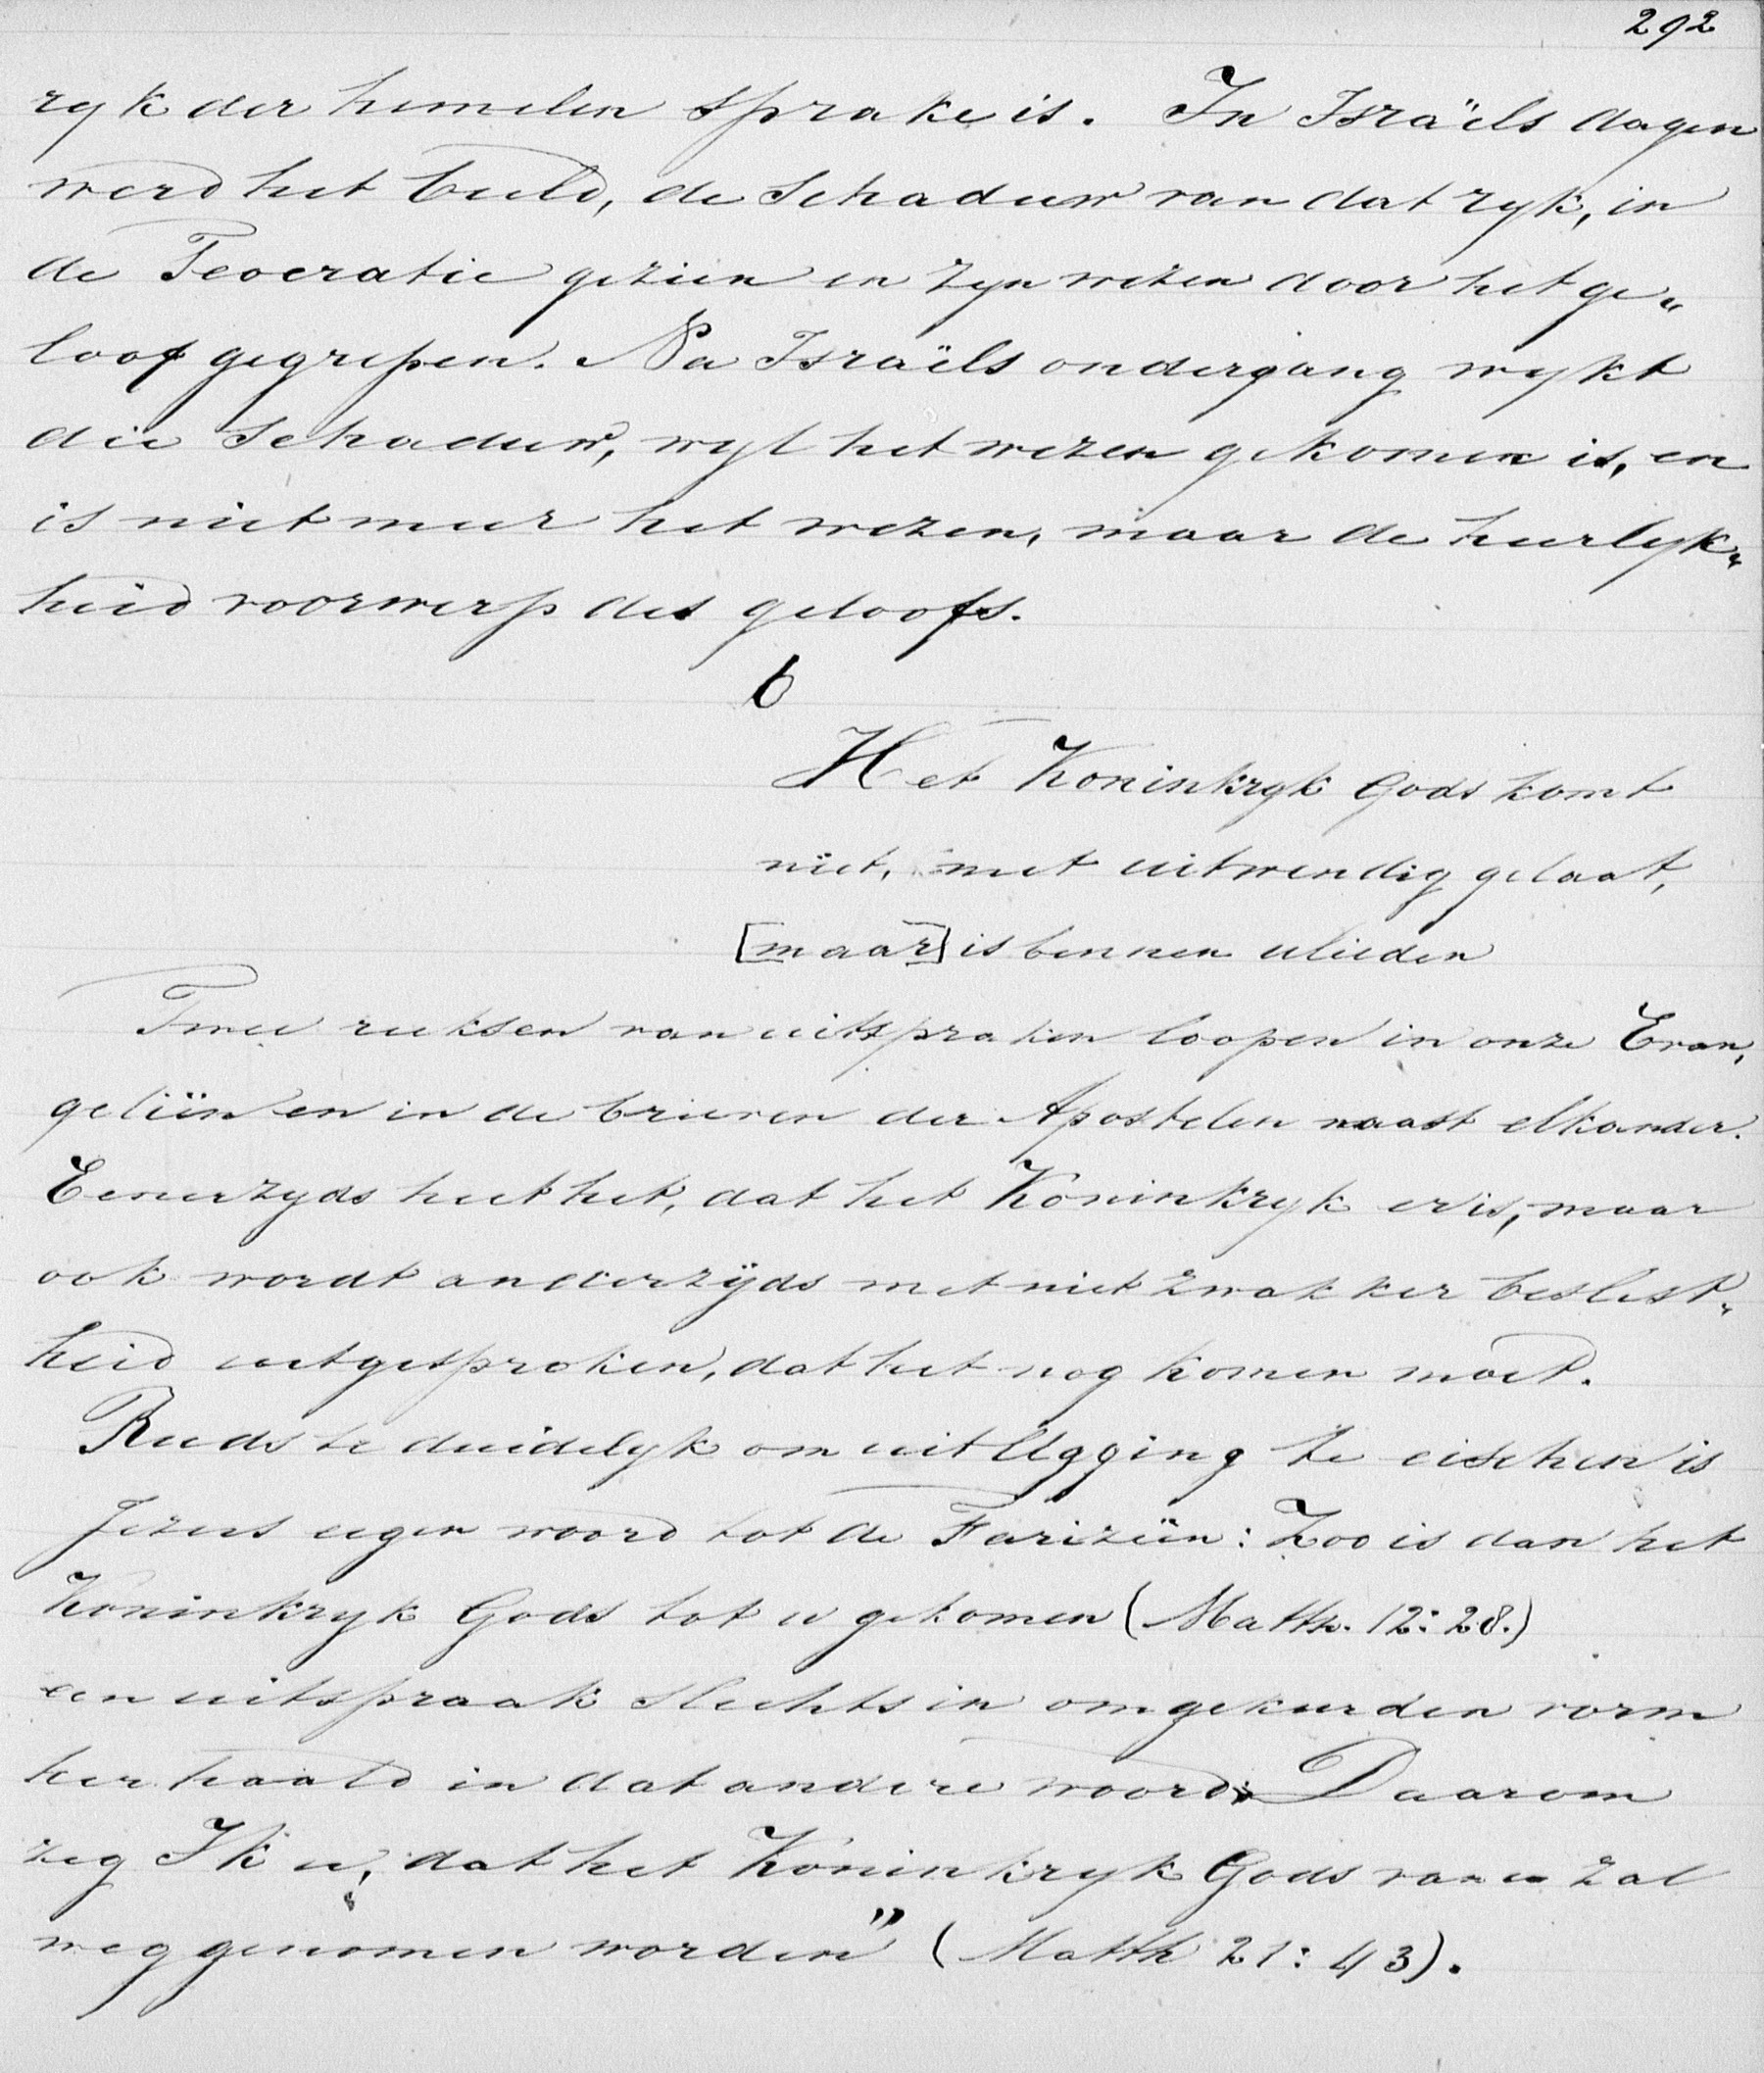 292
ryk der hemelen sprake is. In Israëls dagen
werd het beeld, de schaduw van dat ryk, in
de Teocratie gezien en zyn wezen door het ge„
loof gegrepen. Na Israëls ondergang wykt
die schaduw, wyl het wezen gekomen is, en
is niet meer het wezen, maar de heerlyk„
heid voorwerp des geloofs.
b
Het Koninkryk Gods komt
niet, met uitwendig gelaat,
[maar] is binnen ulieden
Twee reeksen van uitspraken loopen in onze Evan„
geliën en in de brieven der Apostelen naast elkander.
Eenerzyds heet het, dat het Koninkryk er is, maar
ook wordt anderzijds met niet zwakker beslist„
heid uitgesproken, dat het nog komen moet.
Reeds te duidelyk om uitlegging te eischen is
Jezus eigen woord tot de Farizeën: Zoo is dan het
Koninkryk Gods tot u gekomen (Matth. 12:28.)
een uitspraak slechts in omgekeerden vorm
herhaald in dat andere woord: Daarom
zeg Ik u, dat het Koninkryk Gods van u zal
weggenomen worden" (Matth 21:43).